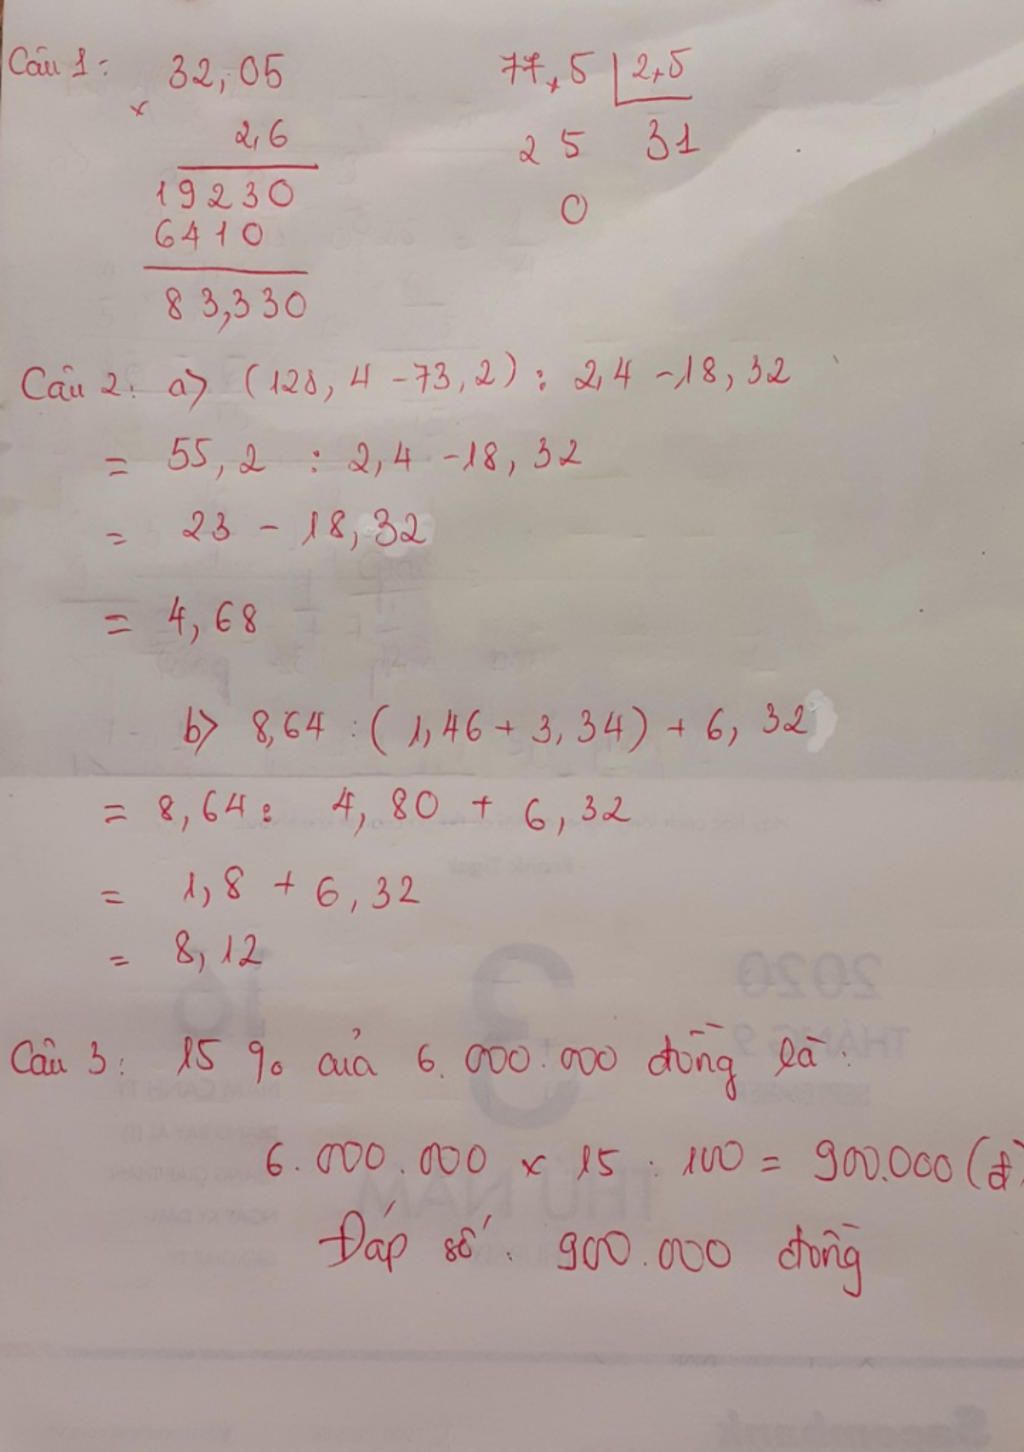 Câu 1:
32,05
x
2,6
19230
6410
83,330
77,5 | 2,5
25 31
0
Câu 2: a> (128,4 - 73,2) : 2,4 - 18,32
= 55,2 : 2,4 - 18,32
= 23 - 18,32
= 4,68
b> 8,64 : (1,46 + 3,34) + 6,32
= 8,64 : 4,80 + 6,32
= 1,8 + 6,32
= 8,12
Câu 3: 15 % của 6.000.000 đồng là:
6.000.000 x 15 : 100 = 900.000 (đ)
Đáp số : 900.000 đồng
2020
THÁNG 9
3
16
THỨ NĂM